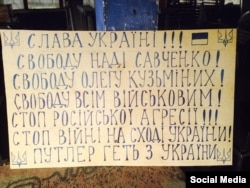 СЛАВА УКРАЇНІ!!!
СВОБОДУ НАДІ САВЧЕНКО!
СВОБОДУ ОЛЕГУ КУЗЬМІНИХ!
СВОБОДУ ВСІМ ВІЙСЬКОВИМ!
СТОП РОСІЙСЬКОЇ АГРЕСІЇ!!!
СТОП ВІЙНІ НА СХОДІ УКРАЇНИ!
ПУТЛЕР ГЕТЬ З УКРАЇНИ
Social Media